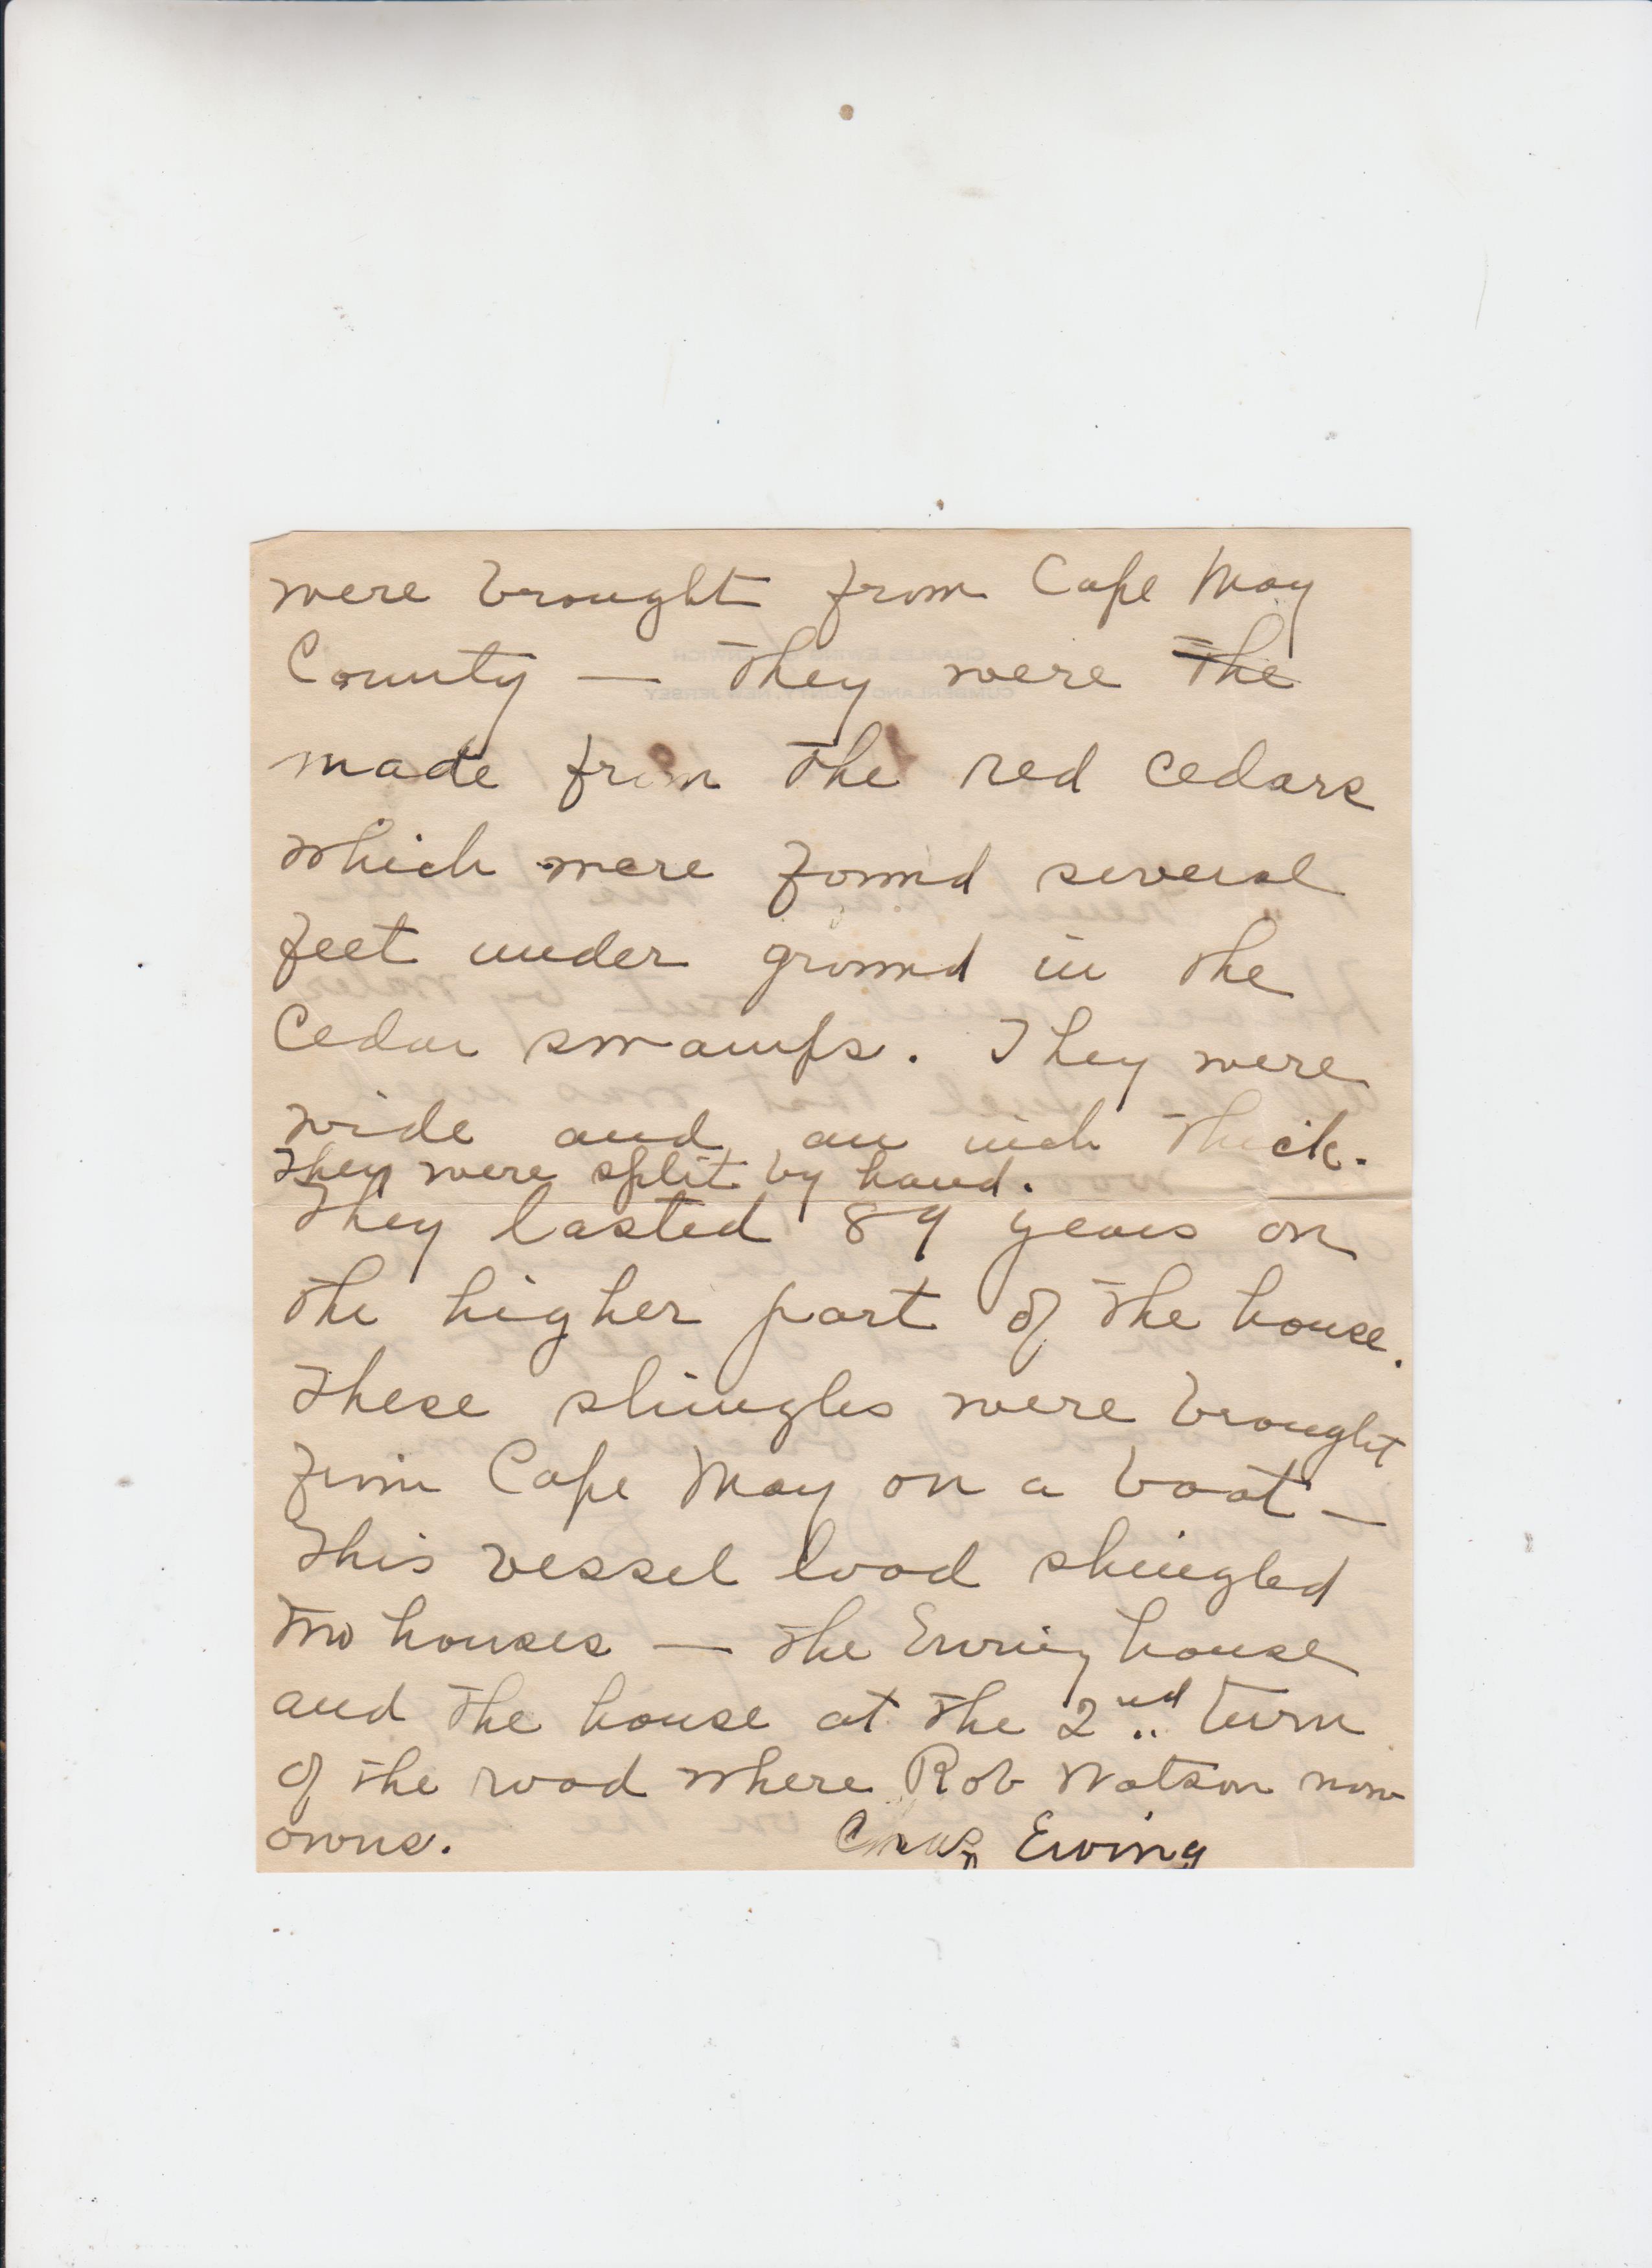 were brought from Cape May
County — They were the
made from the red cedars
which were found several
feet under ground in the
Cedar swamps. They were
wide and an inch thick.
They were split by hand.
They lasted 89 years on
the higher part of the house.
These shingles were brought
from Cape May on a boat —
This vessel load shingled
two houses — the Ewing house
and the house at the 2nd turn
of the road where Rob Watson now
owns. Chas Ewing